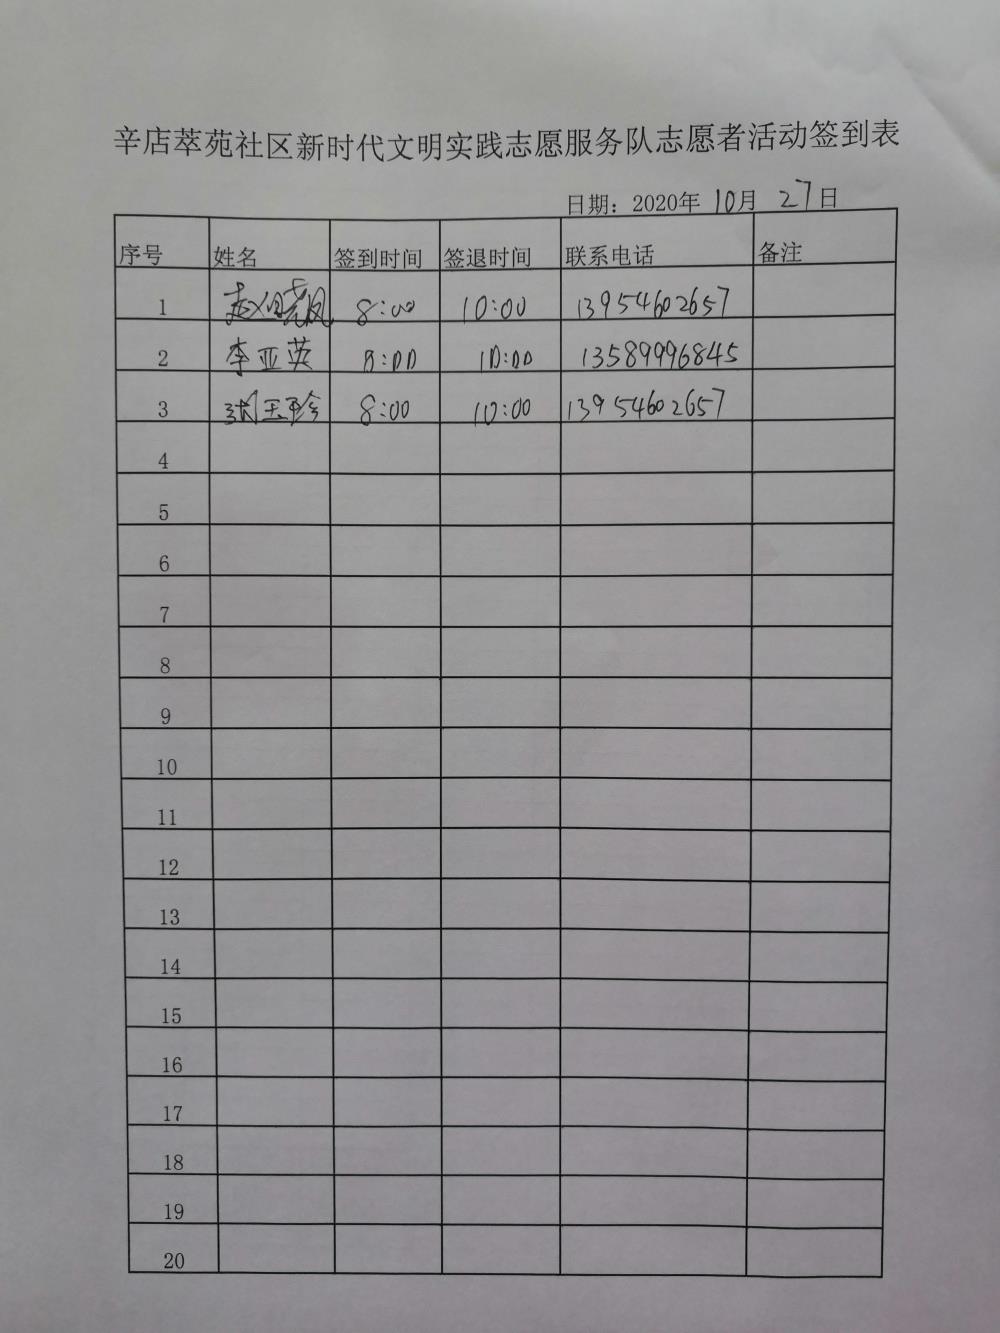 辛店萃苑社区新时代文明实践志愿服务队志愿者活动签到表
日期：2020年 10月 27日
序号 姓名 签到时间 签退时间 联系电话 备注
1 赵晓凤 8:00 10:00 13954602657
2 李亚英 8:00 10:00 13589996845
3 玉珍 8:00 10:00 13954602657
4
5
6
7
8
9
10
11
12
13
14
15
16
17
18
19
20